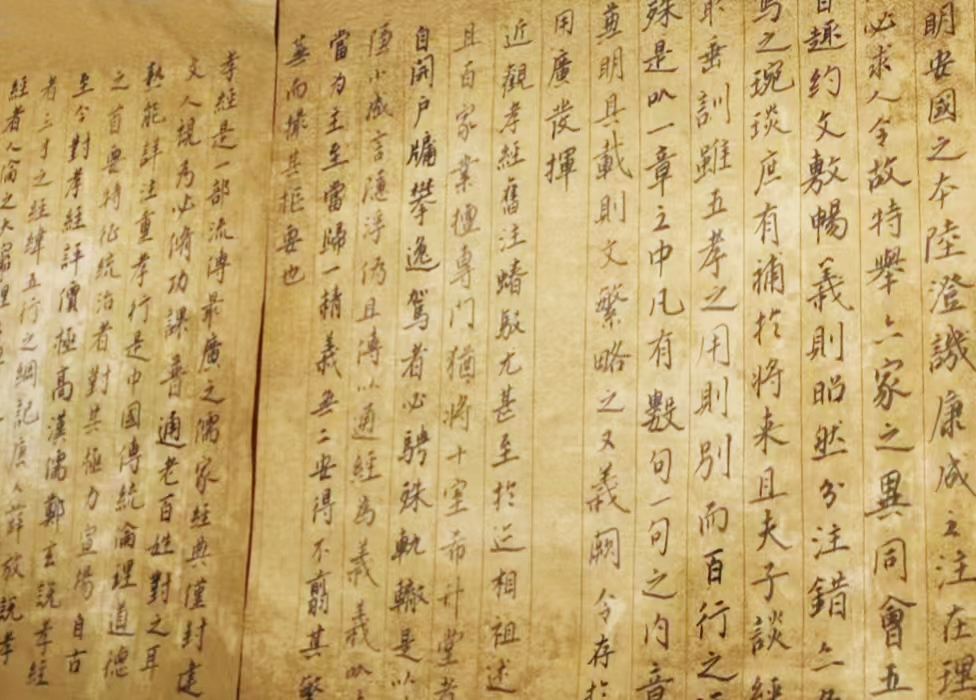 明安國之本陸澄譏康成之注在理
必求人今故特舉六家之異同會五
旨趣約文敷暢義則昭然分注錯
寫之琬琰庶有補於將来且夫子談經
垂訓雖五孝之用則別而百行之
殊是以一章之中凡有數句一句之内意
兼明具載則文繁略之又義闕今存於
用廣發揮
近觀孝經舊注踳駁尤甚至於迹相祖述
且百家業擅專門猶將十室希升堂者
自開户牖攀逸駕者必騁殊軌轍是以
隱小成言隱浮偽且傳以通經為義義以
當為主至當歸一精義無二安得不翦其繁
蕪而撮其樞要也
孝經是一部流傳最廣之儒家經典僅封建
文人視為必脩功課普通老百姓對之耳
熟能詳注重孝行是中國傳統倫理道德
之首要特征統治者對其極力宣揚自古
至今對孝經評價極高漢儒鄭玄説孝經
者三才之經緯五行之綱記唐人薛放説孝
經者人倫之大